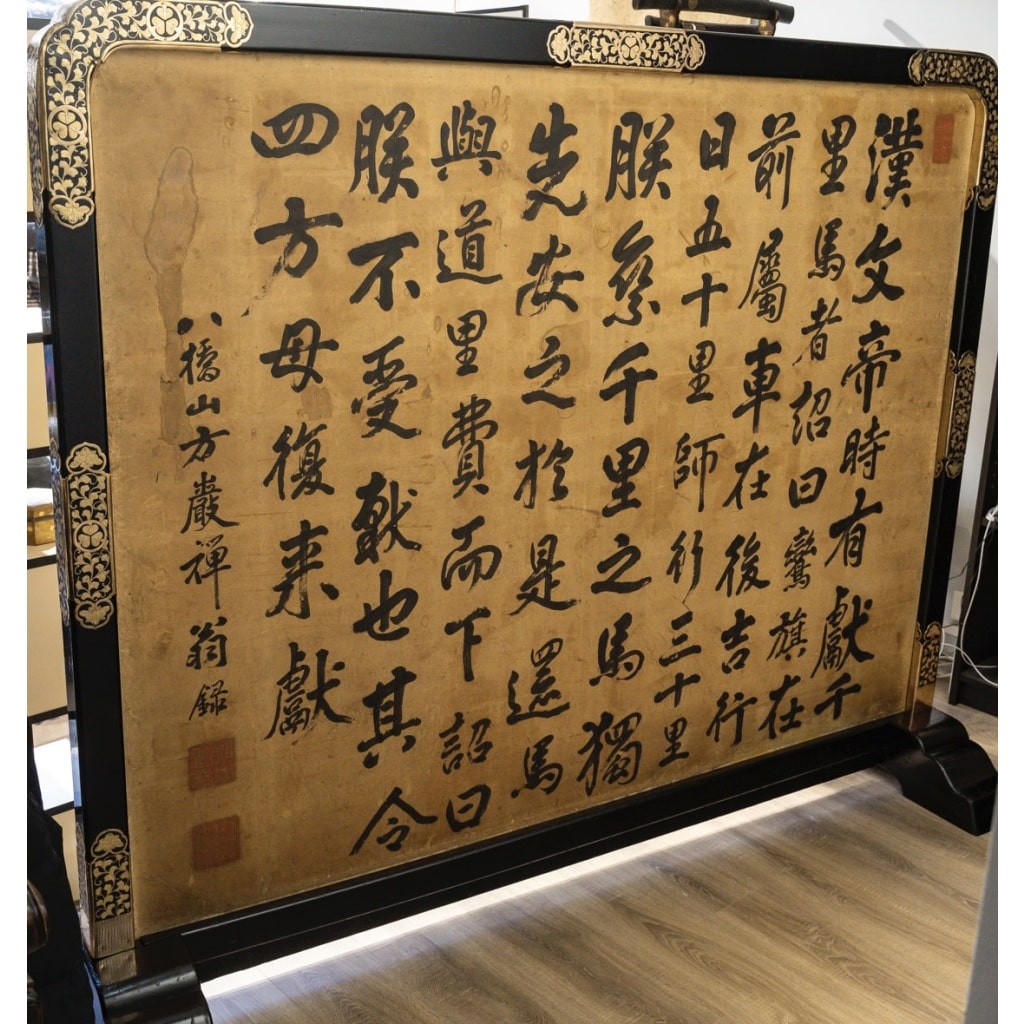 漢文帝時有獻千
里馬者詔曰鸞旗在
前屬車在後吉行
日五十里師行三十里
朕椉千里之馬獨
先安之於是還馬
與道里費而下詔曰
朕不受献也其令
四方母復来獻
八橋山方巖禅翁録